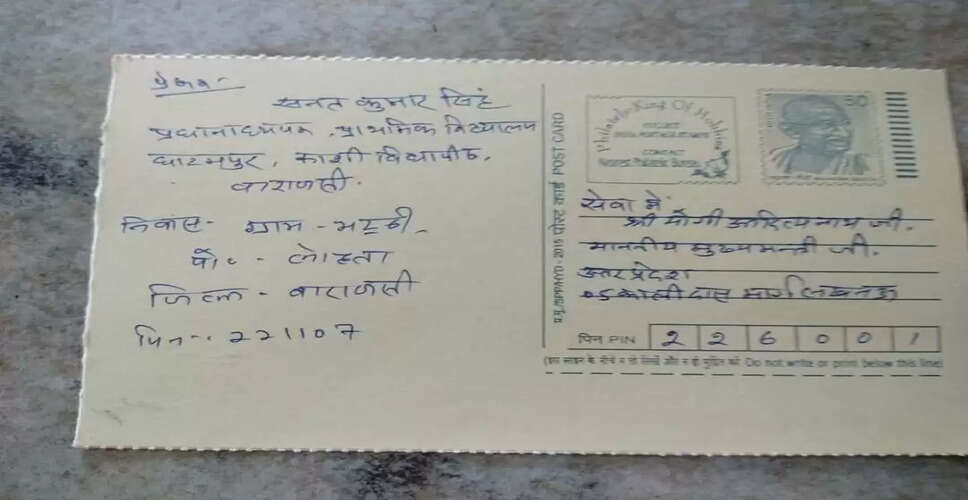 प्रेषक-
सनत कुमार सिंह
प्रधानाध्यापक, प्राथमिक विद्यालय
घाटमपुर, काशी विद्यापीठ,
वाराणसी.
निवास- ग्राम - भट्ठी,
पो० - लोहता
जिला - वाराणसी
पिन-. 221107
पोस्ट कार्ड POST CARD
Philately-King Of Hobbies
COLLECT
INDIA POSTAGE STAMPS
CONTACT
Nearest Philatelic Bureau
50
सेवा में
श्री योगी आदित्यनाथ जी.
माननीय मुख्यमन्त्री जी.
उत्तर प्रदेश
05 कालीदास मार्ग लखनऊ
पिन PIN 2 2 6 0 0 1
(इस लाइन के नीचे न तो लिखें और न ही मुद्रित करें Do not write or print below this line)